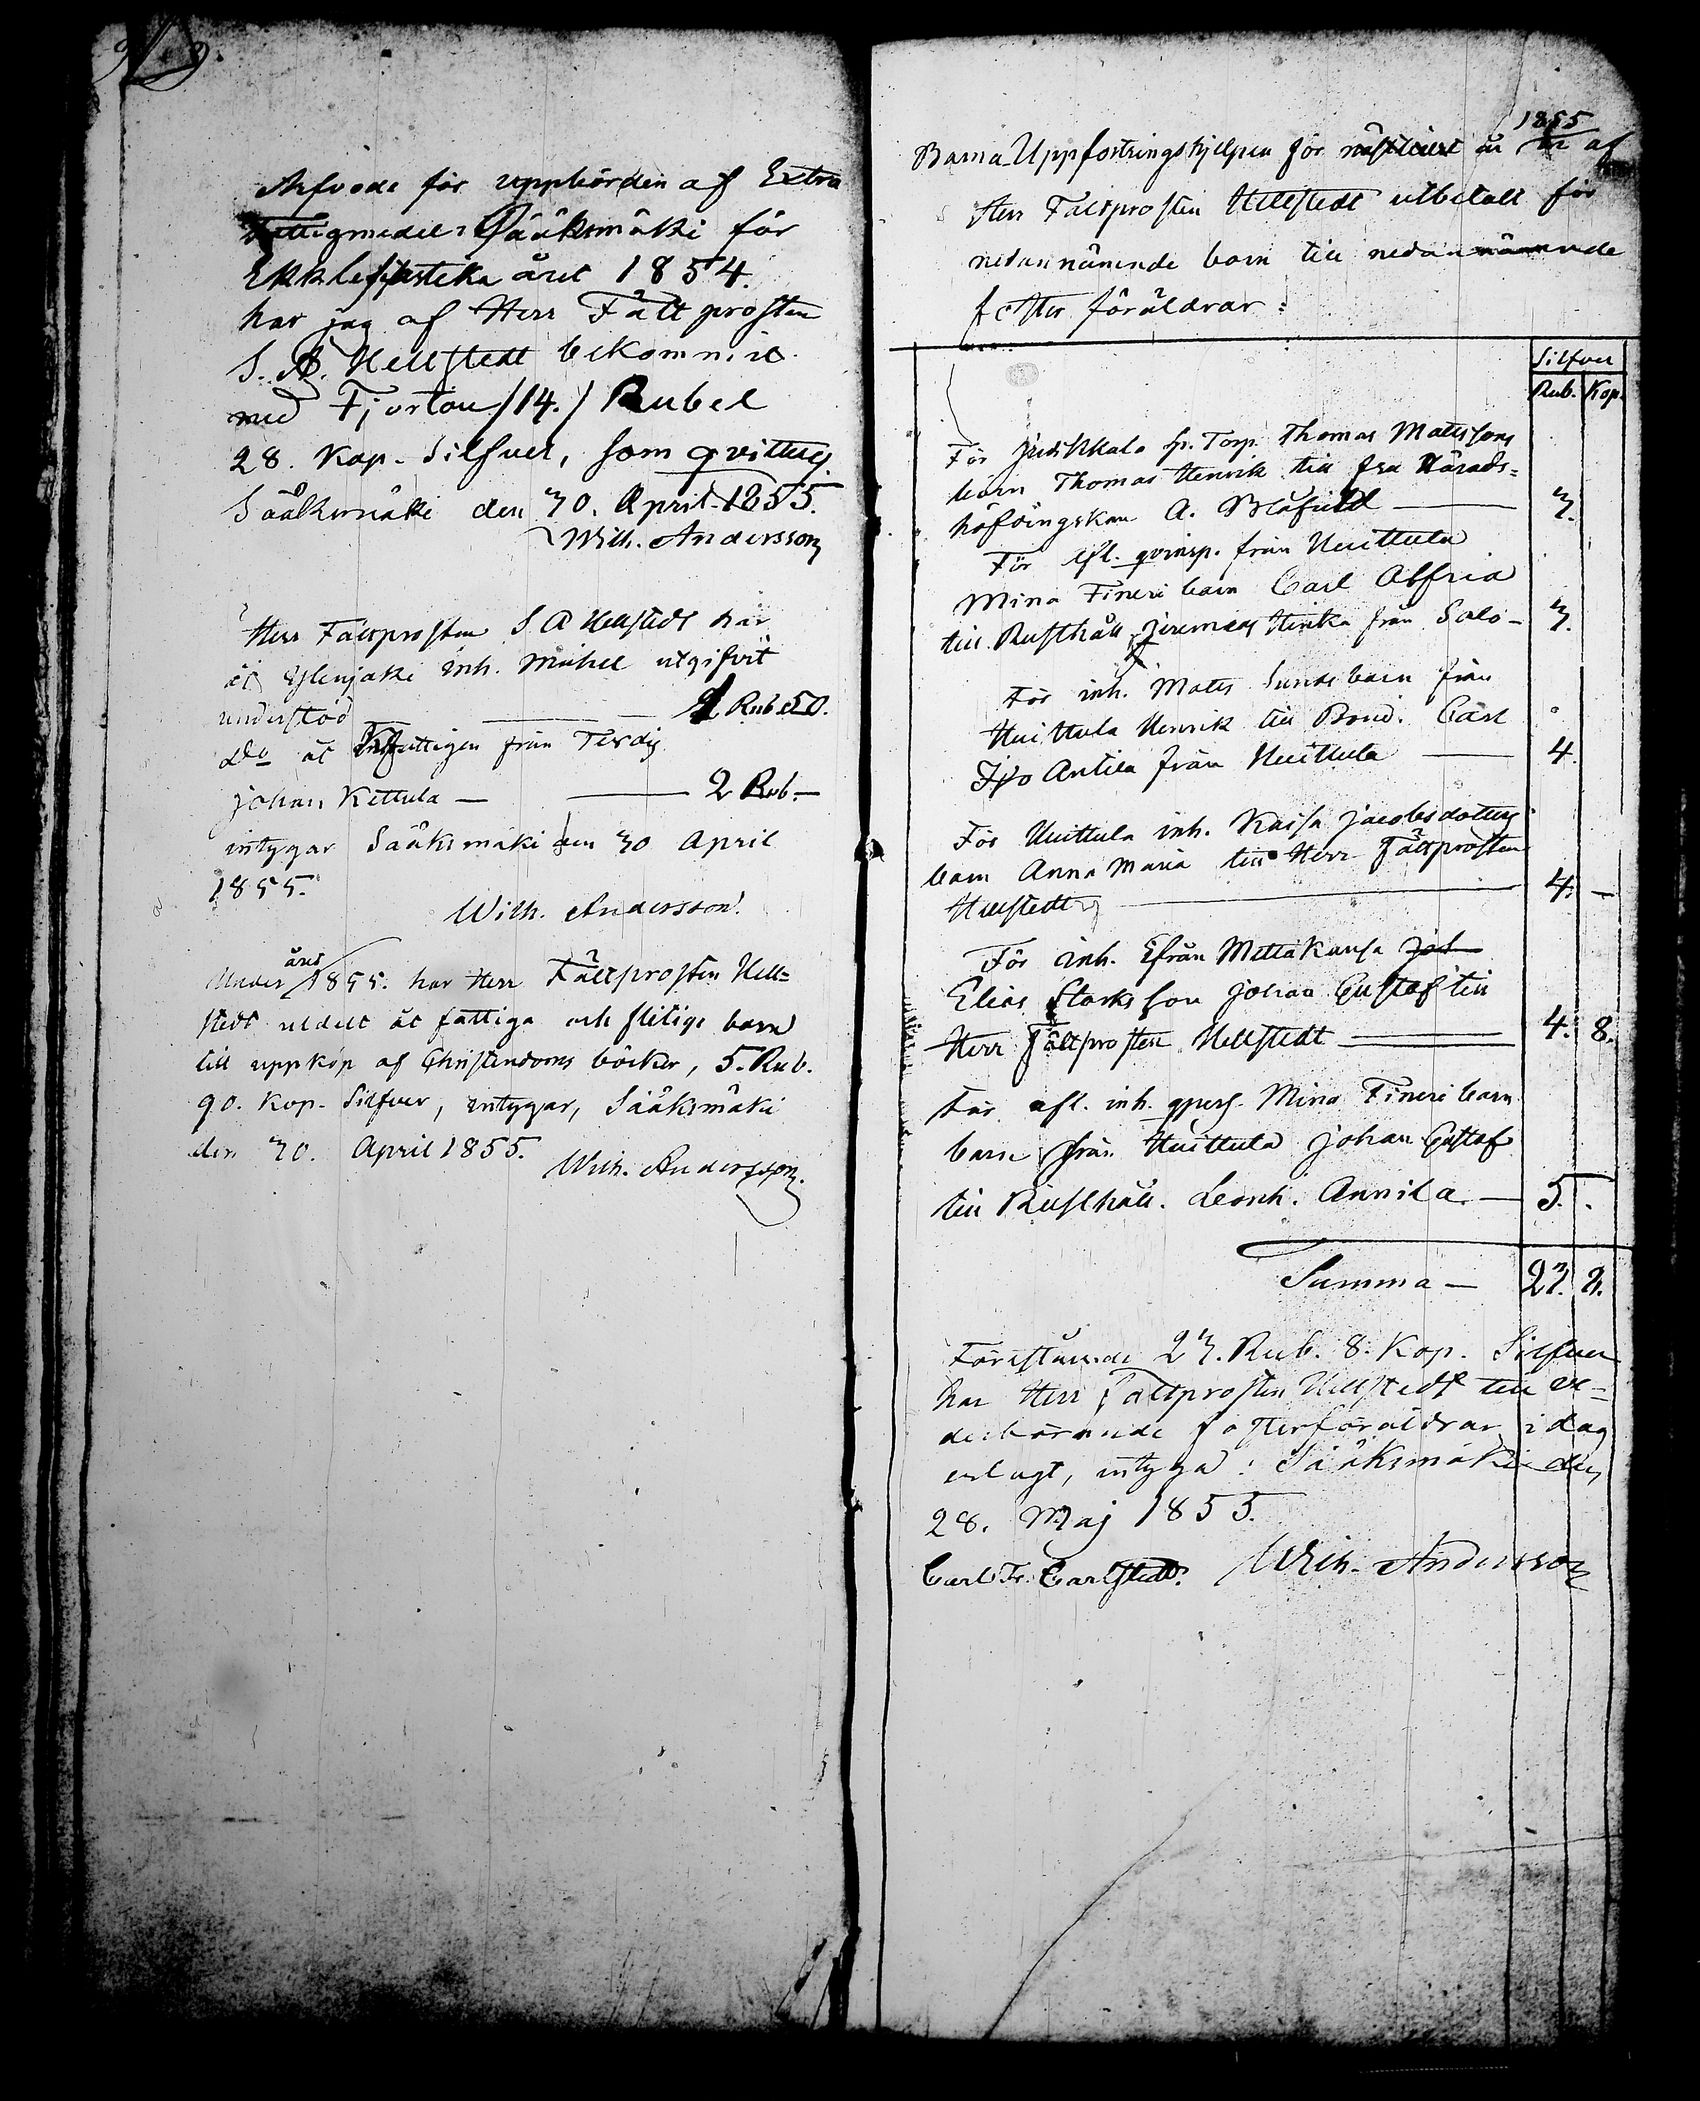 Arfvode för uppbörden af Extra
fattigmedel i Sääksmäki för
Ekklesiastika året 1854.
har jag af Herr Fältprosten
S. A. Hellstedt bekommit
med Fjorton /14./ Rubel
28. Kop. Silfver, som qvitteras
Sääksmäki den 30. April 1855.
Wilh. Andersson
Herr Fältprosten S A Hellstedt har
åt inh. Mickel utgifvit
understöd — 1 Rub 50.
Do åt från
Johan Kettula — 2 Rub. —
intygar Sääksmäki den 30 April
1855.
Wilh. Andersson.
Under året 1855. har Herr Fältprosten Hell-
stedt utdelt åt fattiga och flitige barn
till uppköp af Christendoms böcker, 5. Rub.
90. Kop. Silfver, intygar, Sääksmäki
den 30. April 1855.
Wilh. Andersson.
1855
Barna Uppfostringshjelpen för år af
Herr Fältprosten Hellstedt utbetalt för
nedannämnde barn till nedannämnde
foster föräldrar:
Silfver
Rub. Kop.
För Torp. Thomas Mattssons
barn Thomas Henrik till fru Härads-
höfdingskan A. Blåfield — 3.
För afl. qvinsp. från Huittula
Mina Fineri barn Carl Alfrid
till Rusthåll. Jeremias Heikka från Salo — 3.
För inh. Matts Sunds barn från
Huittula Henrik till Bond. Carl
Antila från Huittula — 4.
För Huittula inh. Kaisa Jacobsdotters
barn Anna Maria till Herr Fältprosten
Hellstedt — 4. —
För inh. från Mettäkansa
Elias Starks son Johan Gustaf till
Herr Fältprosten Hellstedt — 4. 8.
För afl. inh. qpers. Mina Fineri barn
barn från Huittula Johan Gustaf
till Rusthåll. Leonh. Annila — 5. .
Summa — 23. 8.
Förestående 23. Rub. 8. Kop. Silfver
har Herr Fältprosten Hellstedt till ve-
derbörande fosterföräldrar i dag
erlagt, intyga: Sääksmäki den
28. Maj 1855.
Carl Fr. Carlstedt. Wilh. Andersson